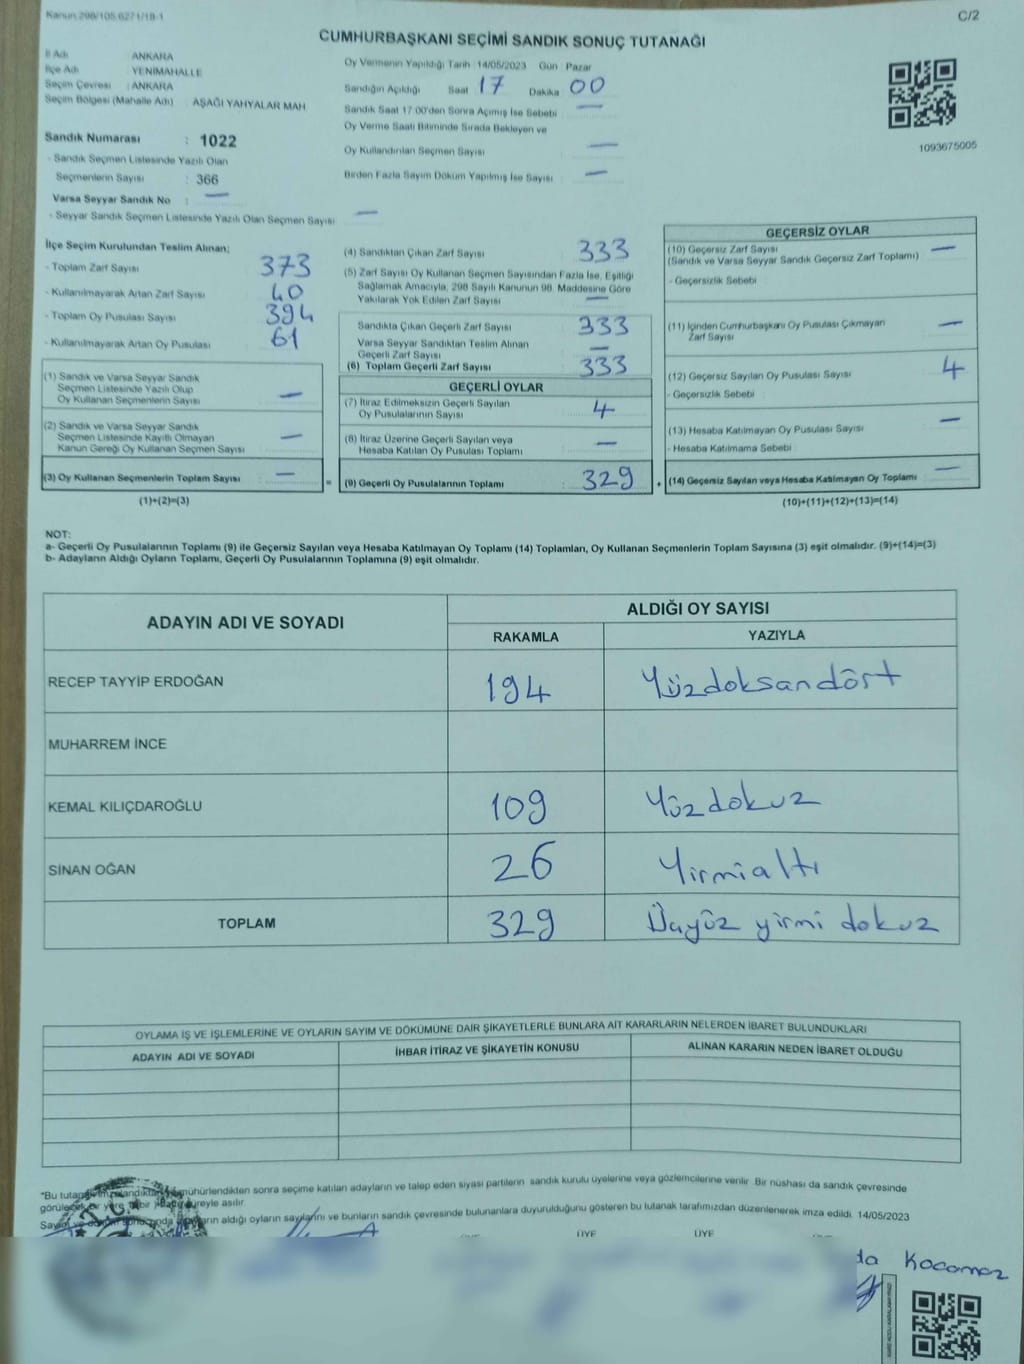 Kanun:298/105,6271/18-1
C/2
CUMHURBAŞKANI SEÇİMİ SANDIK SONUÇ TUTANAĞI
İl Adı : ANKARA
İlçe Adı : YENİMAHALLE
Seçim Çevresi : ANKARA
Seçim Bölgesi (Mahalle Adı) : AŞAĞI YAHYALAR MAH
Sandık Numarası : 1022
- Sandık Seçmen Listesinde Yazılı Olan
Seçmenlerin Sayısı : 366
Varsa Seyyar Sandık No : —
- Seyyar Sandık Seçmen Listesinde Yazılı Olan Seçmen Sayısı : —
Oy Vermenin Yapıldığı Tarih :14/05/2023 Gün : Pazar
Sandığın Açıldığı Saat : 17 Dakika : 00
Sandık Saat 17:00'den Sonra Açılmış İse Sebebi : —
Oy Verme Saati Bitiminde Sırada Bekleyen ve
Oy Kullandırılan Seçmen Sayısı : —
Birden Fazla Sayım Döküm Yapılmış İse Sayısı : —
1093675005
İlçe Seçim Kurulundan Teslim Alınan;
- Toplam Zarf Sayısı : 373
- Kullanılmayarak Artan Zarf Sayısı : 40
- Toplam Oy Pusulası Sayısı : 394
- Kullanılmayarak Artan Oy Pusulası : 61
(1) Sandık ve Varsa Seyyar Sandık
Seçmen Listesinde Yazılı Olup
Oy Kullanan Seçmenlerin Sayısı : —
(2) Sandık ve Varsa Seyyar Sandık
Seçmen Listesinde Kayıtlı Olmayan
Kanun Gereği Oy Kullanan Seçmen Sayısı : —
(3) Oy Kullanan Seçmenlerin Toplam Sayısı : —
(1)+(2)=(3)
=
(4) Sandıktan Çıkan Zarf Sayısı : 333
(5) Zarf Sayısı Oy Kullanan Seçmen Sayısından Fazla İse, Eşitliği
Sağlamak Amacıyla, 298 Sayılı Kanunun 98. Maddesine Göre
Yakılarak Yok Edilen Zarf Sayısı : —
Sandıkta Çıkan Geçerli Zarf Sayısı : 333
Varsa Seyyar Sandıktan Teslim Alınan
Geçerli Zarf Sayısı : —
(6) Toplam Geçerli Zarf Sayısı : 333
GEÇERLİ OYLAR
(7) İtiraz Edilmeksizin Geçerli Sayılan
Oy Pusulalarının Sayısı : 4
(8) İtiraz Üzerine Geçerli Sayılan veya
Hesaba Katılan Oy Pusulası Toplamı : —
(9) Geçerli Oy Pusulalarının Toplamı : 329
+
GEÇERSİZ OYLAR
(10) Geçersiz Zarf Sayısı : —
(Sandık ve Varsa Seyyar Sandık Geçersiz Zarf Toplamı)
- Geçersizlik Sebebi :
(11) İçinden Cumhurbaşkanı Oy Pusulası Çıkmayan : —
Zarf Sayısı
(12) Geçersiz Sayılan Oy Pusulası Sayısı : 4
- Geçersizlik Sebebi :
(13) Hesaba Katılmayan Oy Pusulası Sayısı : —
- Hesaba Katılmama Sebebi :
(14) Geçersiz Sayılan veya Hesaba Katılmayan Oy Toplamı : —
(10)+(11)+(12)+(13)=(14)
NOT:
a- Geçerli Oy Pusulalarının Toplamı (9) ile Geçersiz Sayılan veya Hesaba Katılmayan Oy Toplamı (14) Toplamları, Oy Kullanan Seçmenlerin Toplam Sayısına (3) eşit olmalıdır. (9)+(14)=(3)
b- Adayların Aldığı Oyların Toplamı, Geçerli Oy Pusulalarının Toplamına (9) eşit olmalıdır.
ADAYIN ADI VE SOYADI
ALDIĞI OY SAYISI
RAKAMLA YAZIYLA
RECEP TAYYİP ERDOĞAN 194 Yüzdoksandört
MUHARREM İNCE
KEMAL KILIÇDAROĞLU 109 Yüzdokuz
SİNAN OĞAN 26 Yirmialtı
TOPLAM 329 Üçyüz yirmi dokuz
OYLAMA İŞ VE İŞLEMLERİNE VE OYLARIN SAYIM VE DÖKÜMÜNE DAİR ŞİKAYETLERLE BUNLARA AİT KARARLARIN NELERDEN İBARET BULUNDUKLARI
ADAYIN ADI VE SOYADI İHBAR İTİRAZ VE ŞİKAYETİN KONUSU ALINAN KARARIN NEDEN İBARET OLDUĞU
*Bu mühürlendikten sonra seçime katılan adayların ve talep eden siyasi partilerin sandık kurulu üyelerine veya gözlemcilerine verilir. Bir nüshası da sandık çevresinde
görülecek bir yere bir süreyle asılır.
aldığı oyların sayılarını ve bunların sandık çevresinde bulunanlara duyurulduğunu gösteren bu tutanak tarafımızdan düzenlenerek imza edildi. 14/05/2023
ÜYE ÜYE
Kocamaz